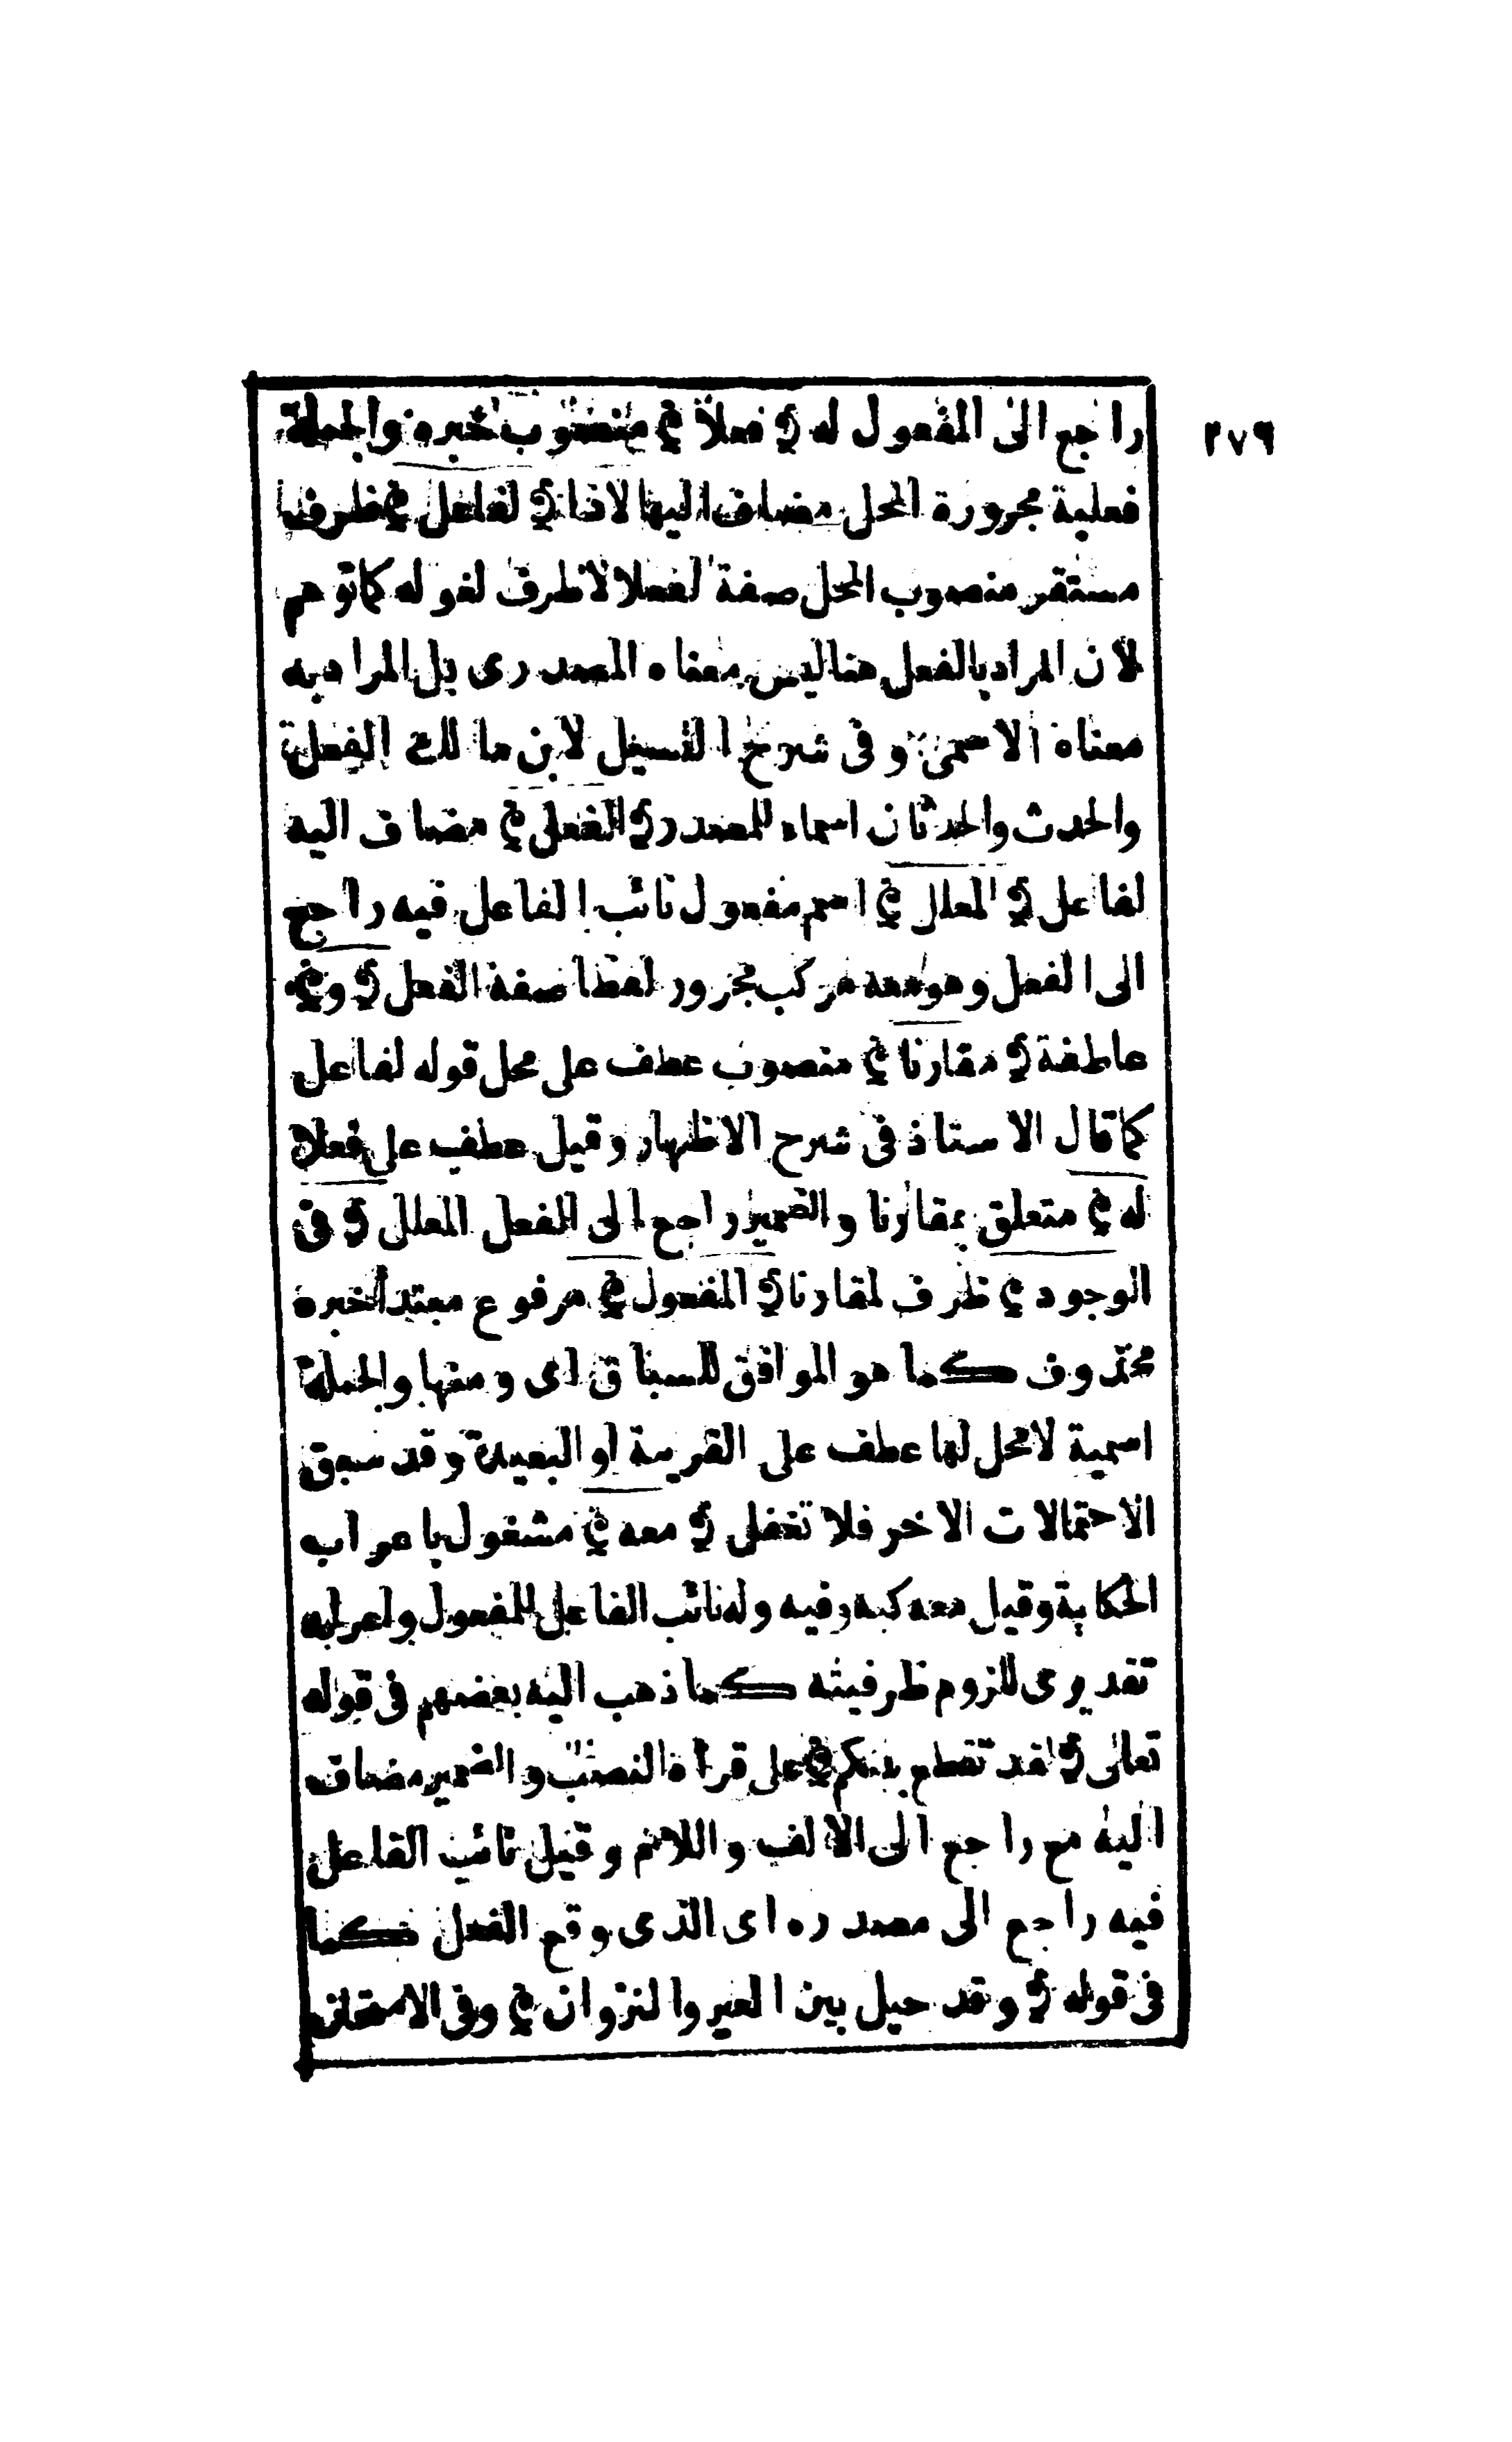 ٢٧٩
راجع الى المفعول له ﴿ فعلا ﴾ منصوب خبره والجملة
فعلية مجرورة المحل مضاف اليها لاذا ﴿ لفاعل ﴾ ظرف
مستقر منصوب المحل صفة لفعلا لا ظرف لغو له كما توهم
لان المراد بالفعل هنا ليس معناه المصدرى بل المراد به
معناه الاسمى وفى شرح التسهيل لابن مالك الفعل
والحدث والحدثان اسماء للمصدر ﴿ الفعل ﴾ مضاف اليه
لفاعل ﴿ المعلل ﴾ اسم مفعول نائب الفاعل فيه راجع
الى الفعل وهو معه مركب مجرور لفظا صفة الفعل ﴿ و ﴾
عاطفة ﴿ مقارنا ﴾ منصوب عطف على محل قوله لفاعل
كما قال الاستاذ فى شرح الاظهار وقيل عطف على فعلا
له ﴾ متعلق بمقارنا والضمير راجع الى الفعل المعلل ﴿ فى
الوجود ﴾ ظرف لمقارنا ﴿ المفعول ﴾ مرفوع مبتدأ خبره
محذوف كما هو الموافق للسباق اى ومنها والجملة
اسمية لا محل لها عطف على القريبة او البعيدة وقد سبق
الاحتمالات الاخر فلا تغفل ﴿ معه ﴾ مشغول باعراب
الحكاية وقيل معه كبه وفيه وله نائب الفاعل للمفعول واعرابه
تقديرى للزوم ظرفيته كما ذهب اليه بعضهم فى قوله
تعالى ﴿ لقد تقطع بينكم ﴾ على قرأة النصب والضمير مضاف
اليه مع راجع الى الالف واللام وقيل نائب الفاعل
فيه راجع الى مصدره اى الذى وقع الفعل كما
فى قوله ﴿ وقد حيل بين العير والنزوان ﴾ وفى الامتحان